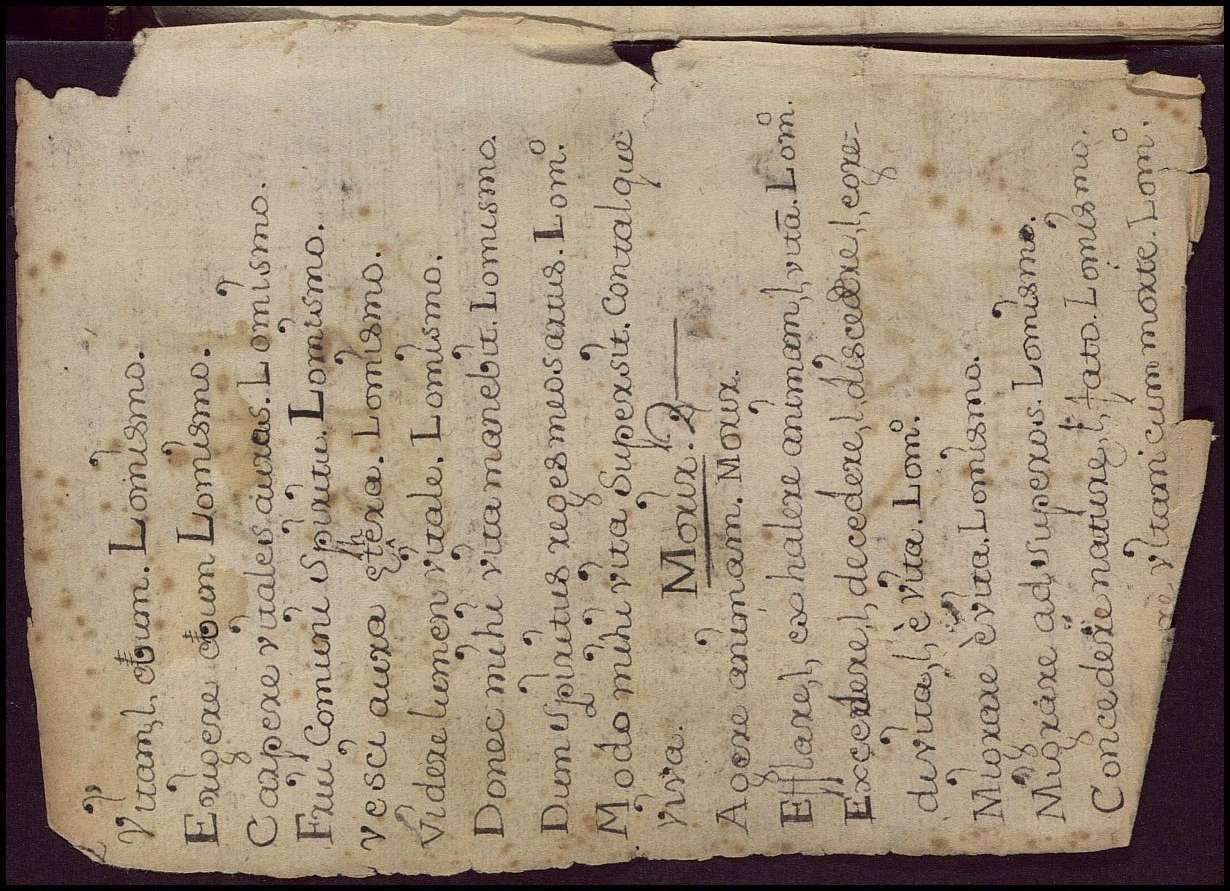 Vitam, l, ævum. Lomismo.
Exigere ævum Lomismo.
Carpere vitales auras. Lomismo.
Frui Comuni spiritu. Lomismo.
Vesci aura etherea. Lomismo.
Videre lumen vitale. Lomismo.
Donec mihi vita manebit. Lomismo.
Dum spiritus reget meos artus. Lom̊.
Modo mihi vita Supersit. Contal que
viva.
Morir.
Agere animam. Morir.
Efflare, l, exhalare animam, l, vitā. Lom̊.
Excedere, l, decedere, l, discedere, l, egre-
di vita, l, è vita. Lom̊.
Migrare è vita. Lomismo.
Migrare ad superos. Lomismo.
Concedere nature, l, fato. Lomismo.
vitam cum morte. Lom̊.